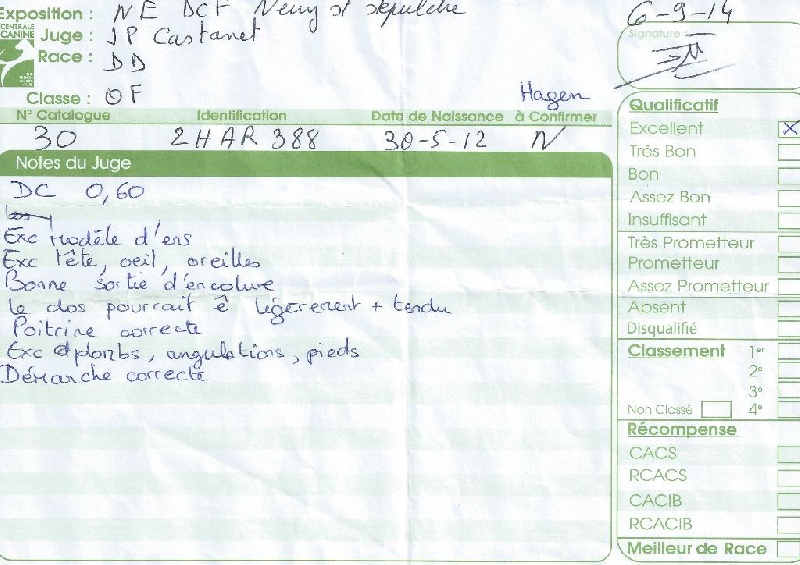 Exposition : NE DCF Neuvy st sépulchre
6-9-14
CENTRALE
CANINE
Juge : JP Castanet
Signature
Race : DD
Classe : OF
Hagen
N° Catalogue Identification Date de Naissance à Confirmer
30 2 HAR 388 30-5-12 N
Notes du Juge
DC 0,60
Exc modèle d'ens
Exc tête, oeil, oreilles
Bonne sortie d'encolure
Le dos pourrait ê légèrement + tendu
Poitrine correcte
Exc aplombs, angulations, pieds
Démarche correcte
Qualificatif
Excellent X
Très Bon
Bon
Assez Bon
Insuffisant
Très Prometteur
Prometteur
Assez Prometteur
Absent
Disqualifié
Classement 1er
2e
3e
Non Classé 4e
Récompense
CACS
RCACS
CACIB
RCACIB
Meilleur de Race